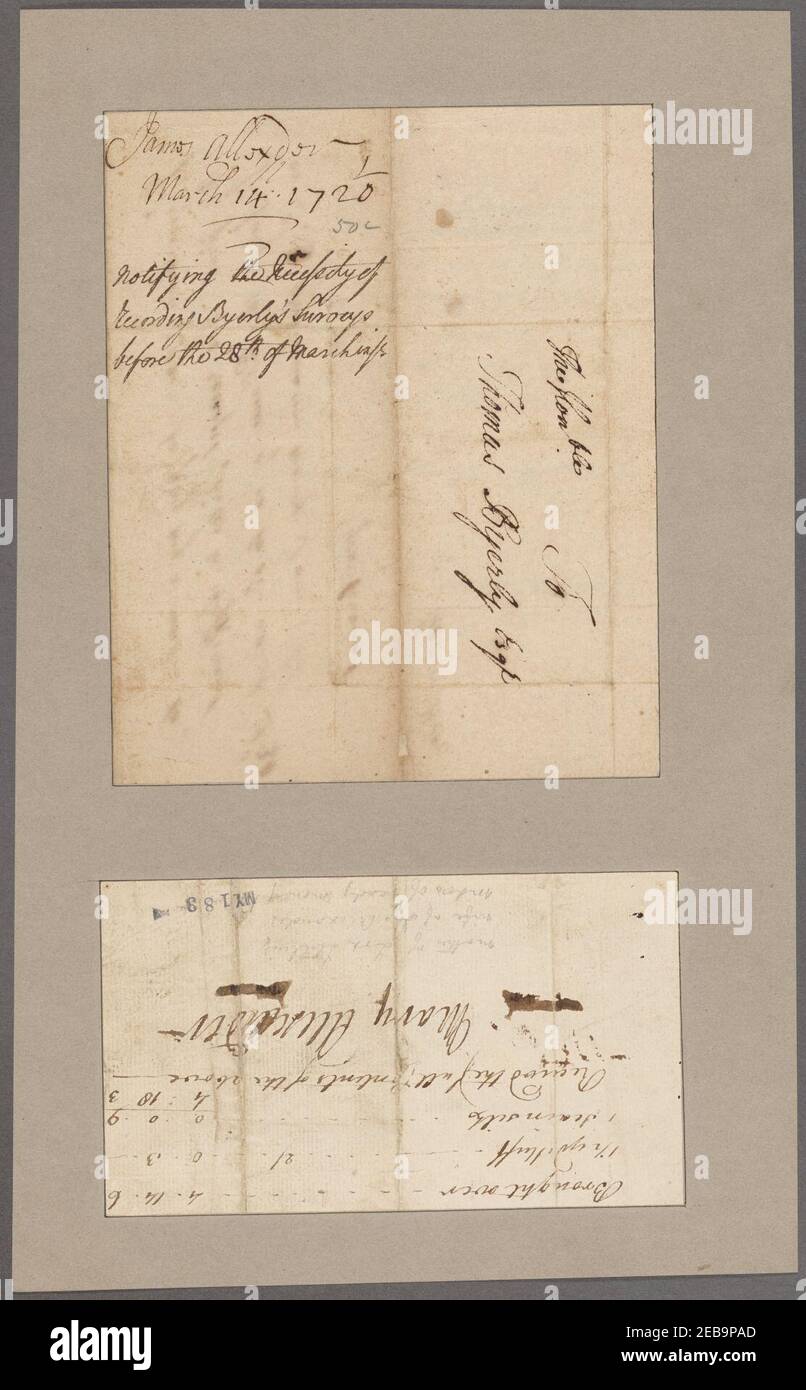 James Allexder
March 14. 1720/1
50c
notifying the Necessity of
Recording Byerly's Surveys
before the 28th of March inst
To
The Honble
Thomas Byerly Esqr
Brought over - - - - 4. 14. 6
1 hyd stuff - - - 21 . 0. 3. —
1 skain silk - - - - 0. 0. 9
4: 18. 3
Received the full Contents of the above
Mary Alexander
mother of
wife of
MY183
alamy
Image ID: 2EB9PAD
www.alamy.com